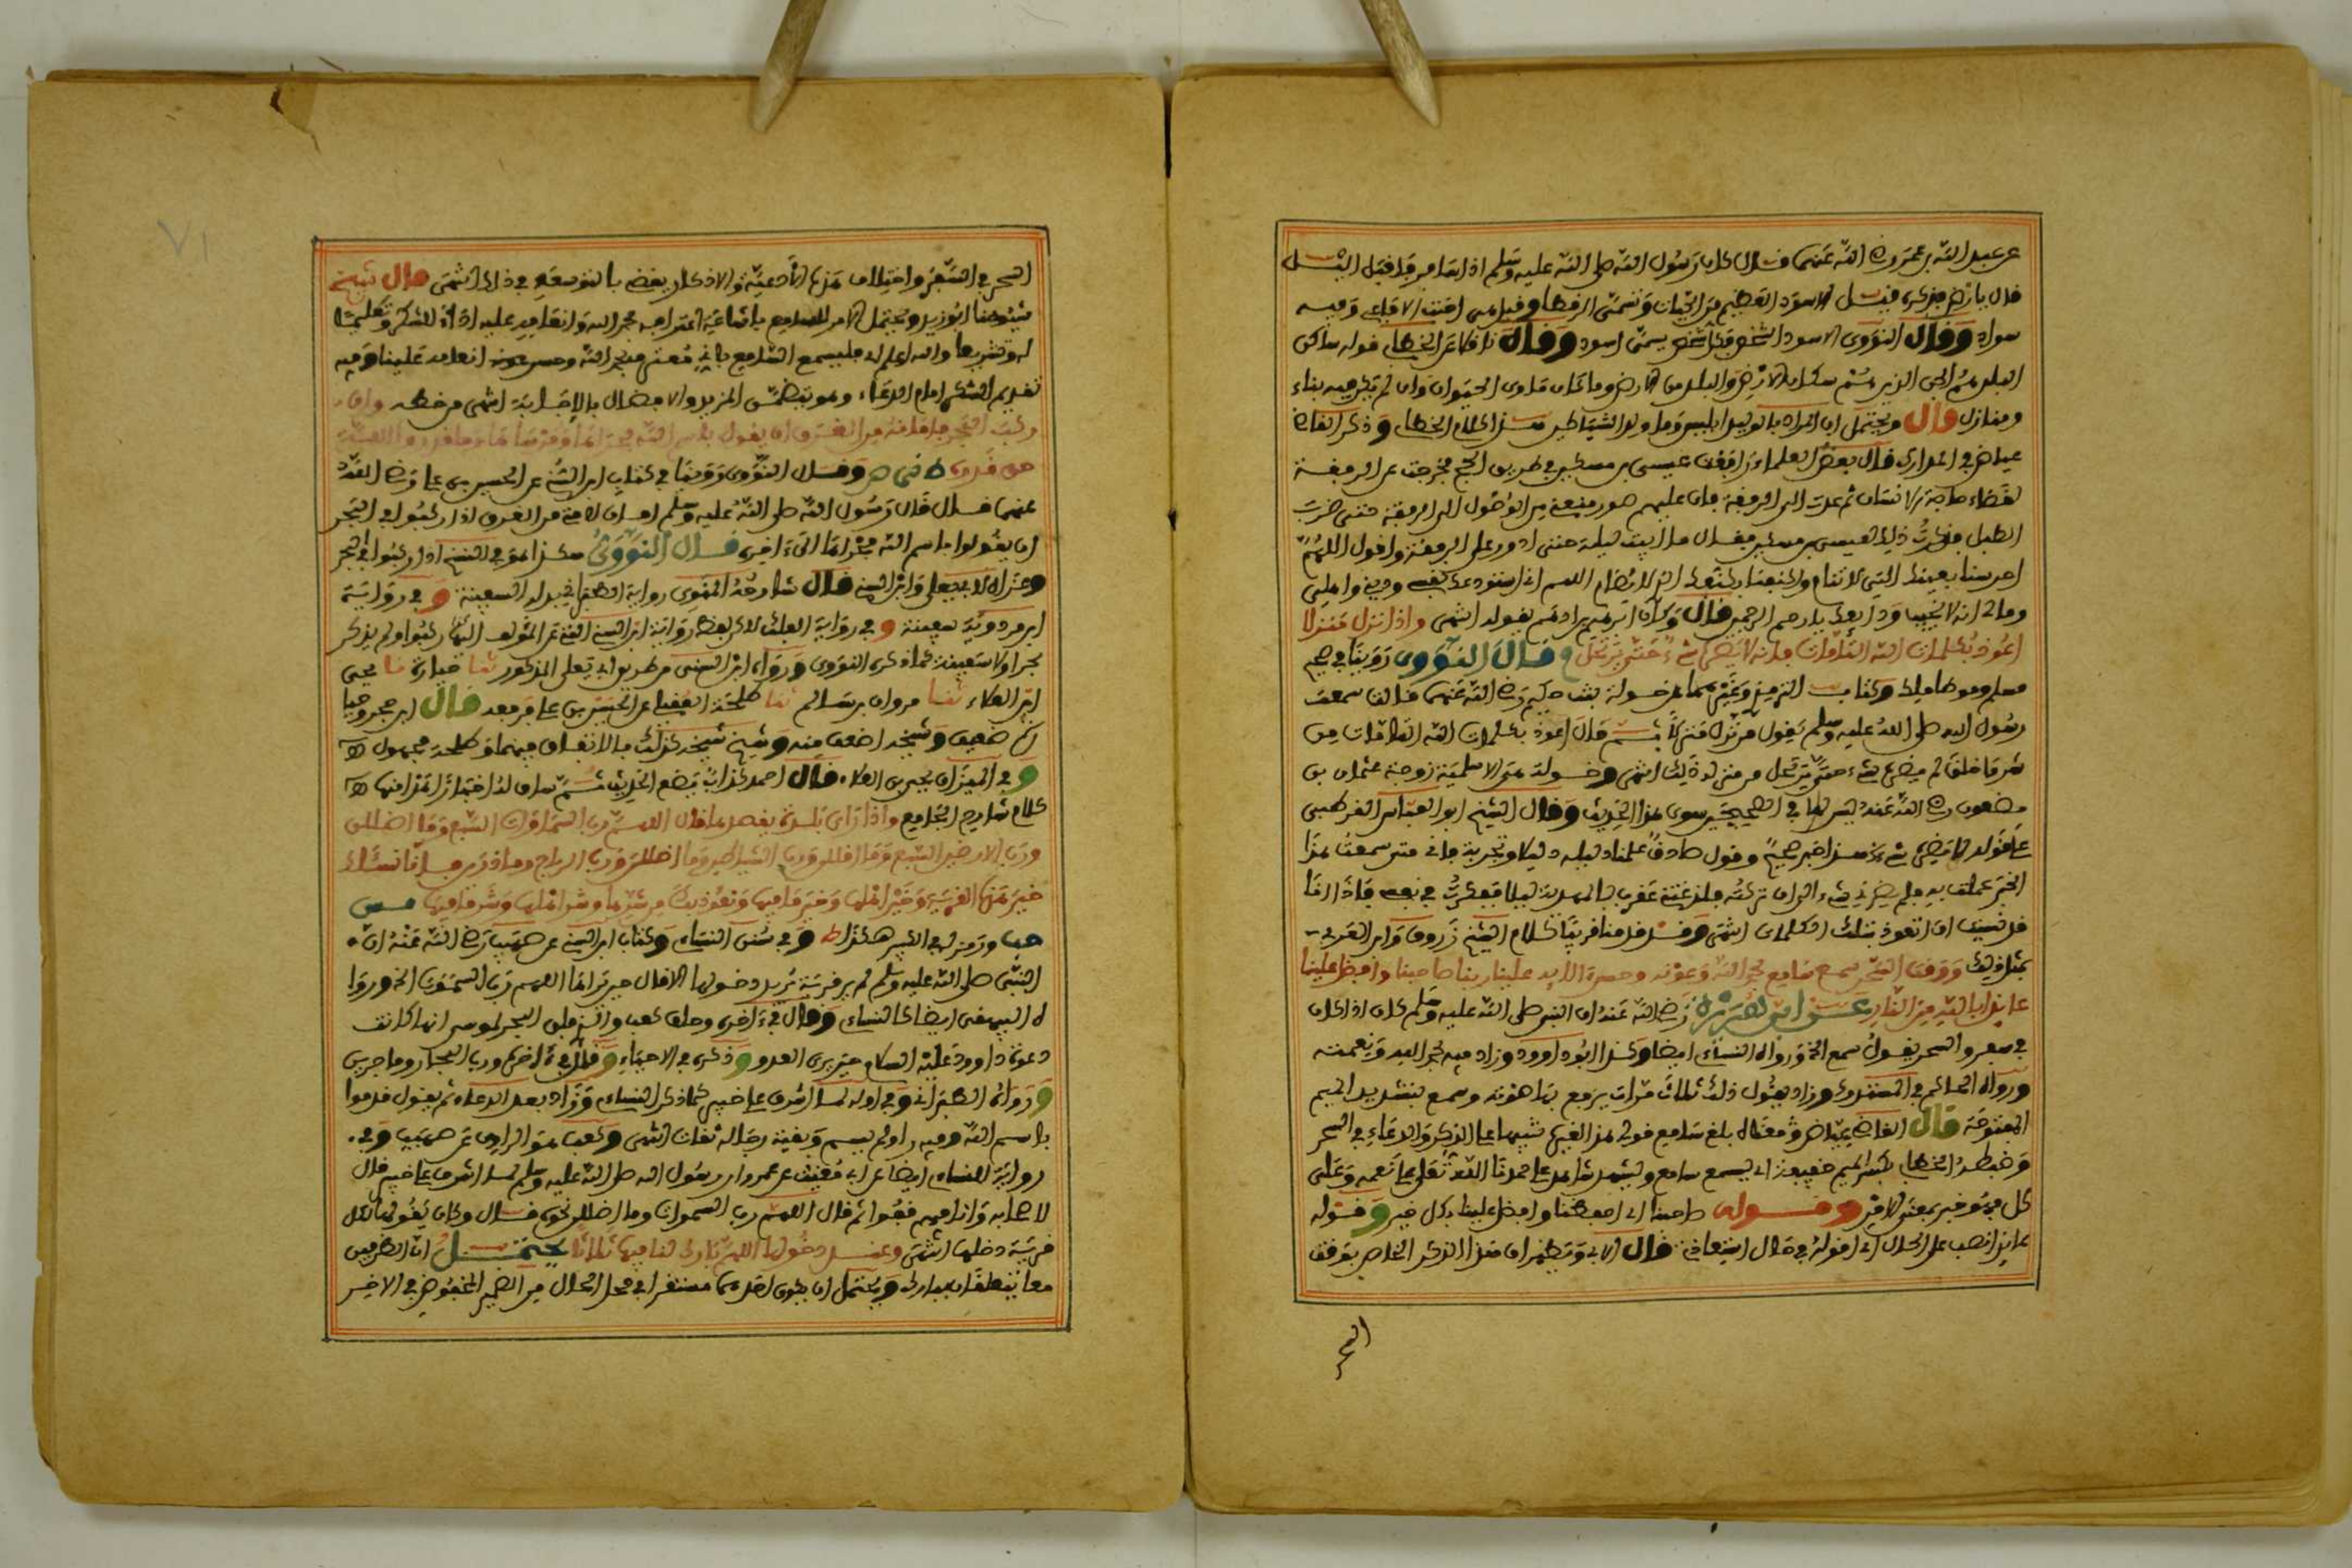 عن عبد الله بن عمر رضي الله عنهما قال كان رسول الله صلى الله عليه وسلم اذا سافر فاقبل الليل
قال يا ارض فذكره قيل الاسود العظيم من الحيات وتسمى الرقطا وقيل هي اخبث الافاعي وفيه
سواد وقال النووي الاسود الشخص فكل شخص يسمى اسود وقال ناقلا عن الخطابي قوله ساكن
البلد هم الجن الذين هم سكان الارض والبلد من الارض ما كان ماوى الحيوان وان لم يكن فيه بناء
ومنازل قال ويحتمل ان المراد بالوالد ابليس وما ولد الشياطين هذا كلام الخطابي وذكر القاضي
عياض في المدارك قال بعض العلماء رافقت عيسى بن مسكين في طريق الحج فخرجت عن الرفقة
لقضاء حاجة الانسان ثم عدت الى الرفقة فاذا عليهم سور منعني من الوصول الى الرفقة حتى ضرب
الطبل فذكرت ذلك لعيسى بن مسكين فقال ما ابيت ليلة حتى ادور على الرفقة واقول اللهم
احرسنا بعينك التي لا تنام واكنفنا بكنفك الذي لا يضام اللهم اني استودعك نفسي وديني واهلي
ومالي انه لا يخيب ودائعك يا ارحم الراحمين قال وكان ابراهيم بن ادهم يقوله انتهى واذا نزل منزلا
اعوذ بكلمات الله التامات فانه لا يضره شيء حتى يرتحل قال النووي روينا في صحيح
مسلم وموطا مالك وكتاب الترمذي وغيرهما عن خولة بنت حكيم رضي الله عنها قالت سمعت
رسول الله صلى الله عليه وسلم يقول من نزل منزلا ثم قال اعوذ بكلمات الله التامات من
شر ما خلق لم يضره شيء حتى يرتحل من منزله ذلك انتهى وخولة هي الاسلمية زوجة عثمان بن
مضعون رضي الله عنه ليس لها في الصحيحين سوى هذا الحديث وقال الشيخ ابو العباس القرطبي
على قوله لم يضره شيء هذا خبر صحيح وقول صادق علمنا دليله دليلا وتجربة فاني منذ سمعت هذا
الخبر عملت به فلم يضرني شيء الى ان تركته فلدغتني عقرب بالمهدية ليلا فتفكرت في نفسي فاذا انا
قد نسيت ان اتعوذ بتلك الكلمات انتهى وقد قدمنا قريبا كلام الشيخ زروق وابن العربي
بمثل ذلك ووقت السحر سمع سامع بحمد الله ونعمته وحسن بلائه علينا ربنا صاحبنا وافضل علينا
عائذا بالله من النار عن ابي هريرة رضي الله عنه ان النبي صلى الله عليه وسلم كان اذا كان
في سفر واسحر يقول سمع الخ ورواه النساءي ايضا وكذا ابو داوود وزاد فيه بحمد الله ونعمته
ورواه الحاكم في المستدرك وزاد يقول ذلك ثلاث مرات يرفع بها صوته وسمع بتشديد الميم
المفتوحة قال القاضي عياض ومعناه بلغ سامع قولي هذا لغيره تنبيها على الذكر والدعاء في السحر
وضبطه الخطابي بكسر الميم خفيفة اي ليسمع سامع وليشهد شاهد على حمدنا الله تعالى على نعمه وعلى
وقوله صاحبنا اي احفظنا وافضل علينا بكل خير وقوله
عائذا نصب على الحال اي اقوله في حال استعاذتي قال الابي ويظهر ان هذا الذكر الخاص بوقت
السحر
السحر في السفر واختلاف هذه الادعية والاذكار يقضي بالتوسعة في ذلك انتهى قال شيخ
شيوخنا ابو زيد ويحتمل الامر للسامع باشاعة اعترافه بحمد الله وانعامه عليه اداء للشكر وتعليما
له وتشريعا والله اعلم اي فليسمع السامع باني معترف بحمد الله وحسن انعامه علينا وفيه
تقديم الشكر امام الدعاء وهو يتضمن المزيد والافضال بالاجابة انتهى من خطه وان
ركب البحر فامانه من الغرق ان يقول بسم الله مجراها ومرساها وما قدروا الله
حق قدره ط ص ي وقال النووي روينا في كتاب ابن السني عن الحسين بن علي رضي الله
عنهما قال قال رسول الله صلى الله عليه وسلم امان لامتي من الغرق اذا ركبوا في البحر
ان يقولوا بسم الله مجراها الى اخره قال النووي هكذا هو في النسخ اذا ركبوا في البحر
وعزاه لابي يعلى وابن السني قال شارحه المناوي رواية الطبراني بدله السفينة وفي رواية
ابن مردويه سفينة وفي رواية الفلك لكن لفظ رواية ابن السني التي عزا المؤلف اليها ركبوا ولم يذكر
بحرا ولا سفينة كما ذكره النووي ورواه ابن السني من طريق ابي يعلى المذكور ثنا جبارة ثنا يحيى
ابن العلاء ثنا مروان بن سالم ثنا طلحة العقيلي عن الحسين بن علي مرفوعا قال ابن حجر وجبارة
ضعيف وشيخه اضعف منه وشيخ شيخه كذلك بالاتفاق فيهما وطلحة مجهول اه
وفي الميزان يحيى بن العلاء قال احمد كذاب يضع الحديث ثم ساق له اخبارا هذا منها اه
كلام شارح الجامع واذا راى بلدة يقصدها قال اللهم رب السماوات السبع وما اظللن
ورب الارضين السبع وما اقللن ورب الشياطين وما اضللن ورب الرياح وما ذرين فانا نسالك
خير هذه القرية وخير اهلها وخير ما فيها ونعوذ بك من شرها وشر اهلها وشر ما فيها س
حب ورمز له في الكبير هكذا ط وفي سنن النساءي وكتاب ابن السني عن صهيب رضي الله عنه ان
النبي صلى الله عليه وسلم لم ير قرية يريد دخولها الا قال حين يراها اللهم رب السموات الخ وروا
ه البيهقي ايضا كالنساءي وقال في اخره وحلف كعب والذي فلق البحر لموسى انها كانت
دعوة داوود عليه السلام حين يرى العدو وذكره في الاحياء وقال في اخره ورب البحار وما جرين
ورواه الطبراني وفي اوله لما اشرف على خيبر كما ذكر النساءي وزاد بعد الدعاء ثم يقول قدموا
باسم الله وفيه راو لم يسم وبقية رجاله ثقات انتهى وكعب هو الراوي عن صهيب وفي
رواية للنساءي ايضا عن ابي مغيث بن عمرو ان رسول الله صلى الله عليه وسلم لما اشرف على خيبر قال
لاصحابه وانا فيهم قفوا ثم قال اللهم رب السموات وما اظللن نحوه قال وكان يقولها لكل
قرية دخلها انتهى وعند دخولها اللهم بارك لنا فيها ثلاثا يحتمل ان الظرفين
معا يتعلقان ببارك ويحتمل ان يكون احدهما مستقرا في محل الحال من الضمير المخفوض في الاخير